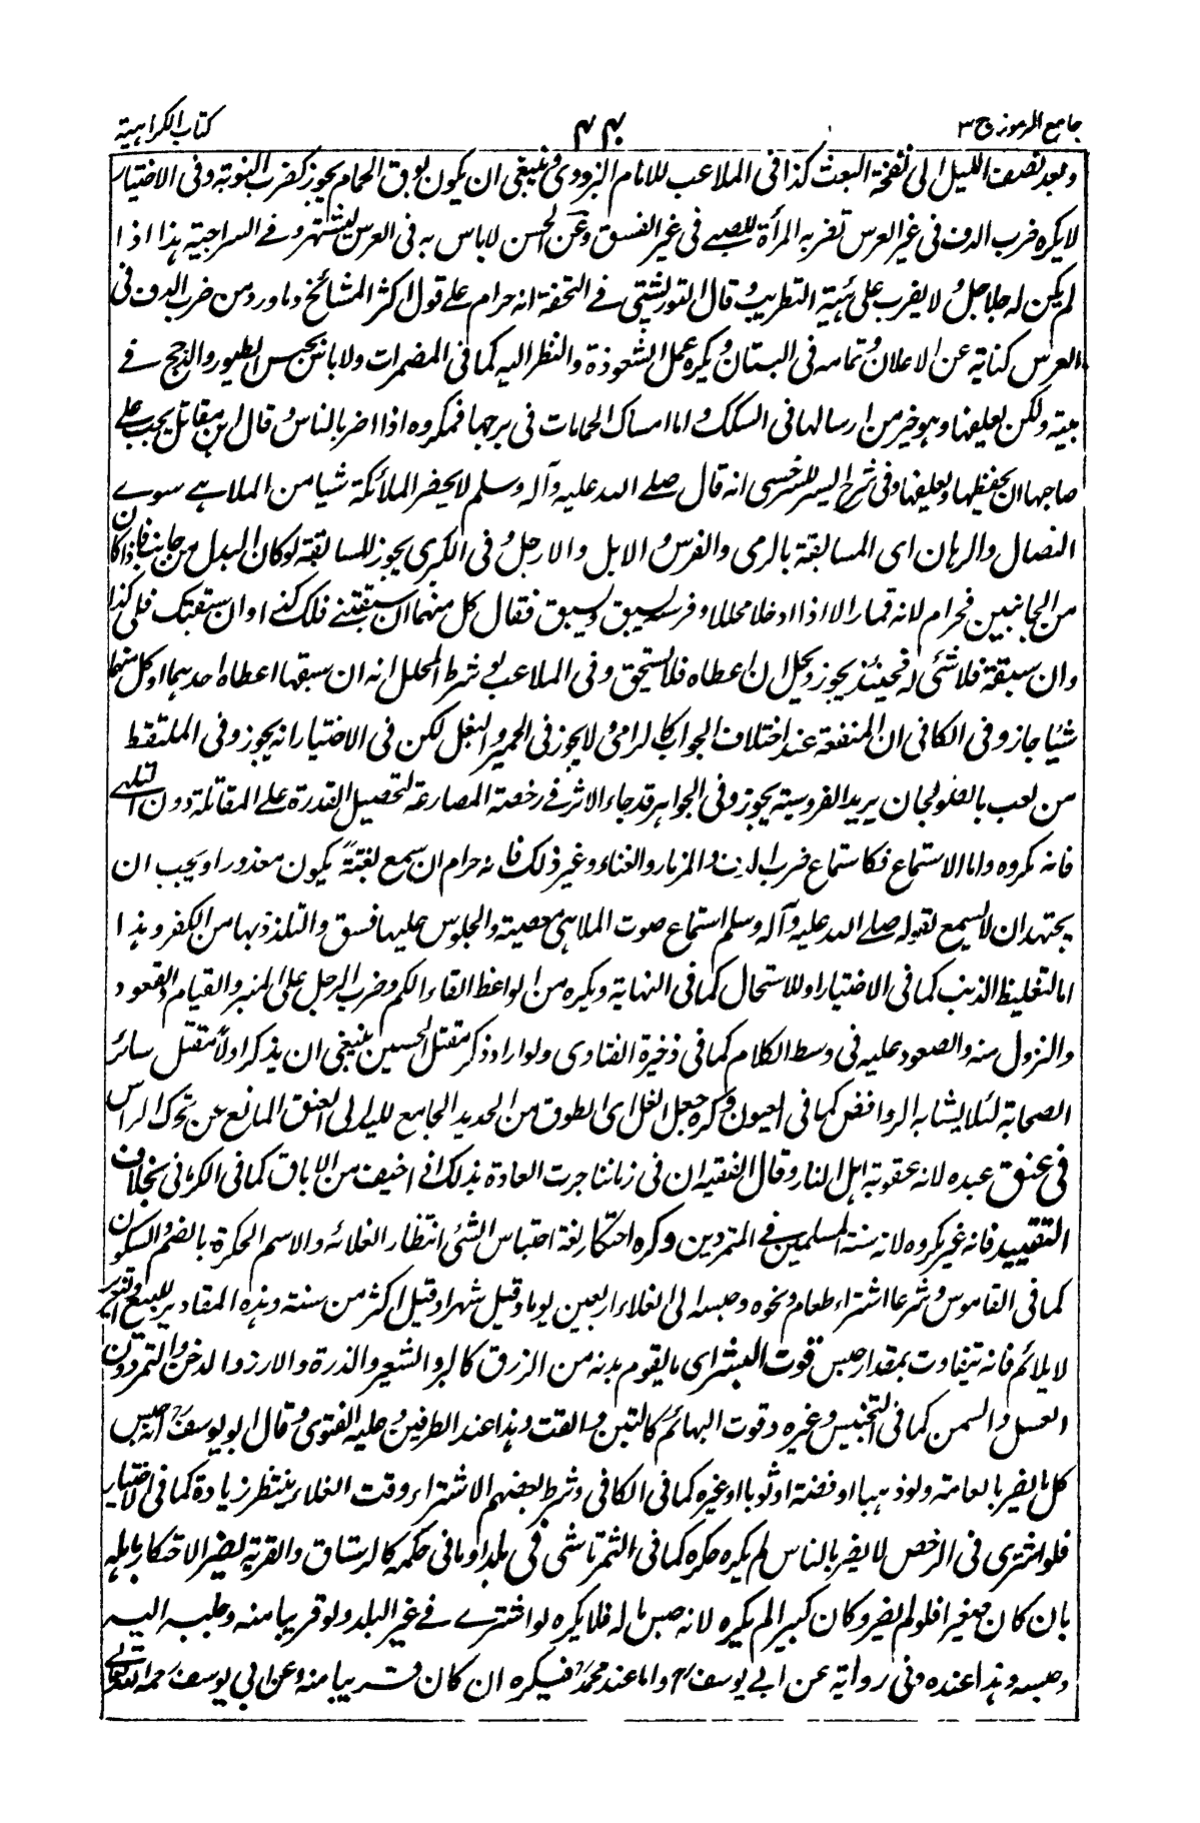 جامع الرموز ج ٣
٤٤٠
كتاب الكراهية
وبعد نصف الليل الى نفخة البعث كذا فى الملاعب للامام البزدوى وينبغى ان يكون بوق الحمام يجوز كضرب النوبة وفى الاختيار
لا يكره ضرب الدف فى غير العرس تضربه المرأة للصبى فى غير الفسق وعن الحسن لا باس به فى العرس ليشتهر وفى السراجية هذا اذا
لم يكن له جلاجل ولا يضرب على هيئة التطريب وقال التورپشتى فى التحفة انه حرام على قول اكثر المشائخ وما ورد من ضرب الدف فى
العرس كناية عن الاعلان وتمامه فى البستان ويكره عمل الشعوذة والنظر اليه كما فى المضمرات ولا باس بحبس الطيور والدجج فى
بيته ولكن يعلفها وهو خير من ارسالها فى السكك واما امساك الحمامات فى برجها فمكروه اذا اضر بالناس وقال ابن مقاتل يجب على
صاحبها ان يحفظها ويعلفها وفى شرح السير للسرخسى انه قال صلى الله عليه وآله وسلم لا يحضر الملائكة شيا من الملاهى سوى
النصال والرهان اى المسابقة بالرمى والفرس والابل والارجل وفى الكبرى يجوز للسابقة لو كان البدل من جانب فاذا كان
من الجانبين فحرام لانه قمار الا اذا ادخلا محللا وفرسه يسبق ويسبق فقال كل منهما ان سبقتنى فلك كذا وان سبقتك فلى كذا
وان سبقه فلا شئ له فحينئذ يجوز ويحل ان اعطاه فلا يستحق وفى الملاعب لو شرط المحلل انه ان سبقها اعطاه احدهما او كل منهما
شيئا جاز وفى الكافى ان المنفعة عند اختلاف الجواب كالرامى ولا يجوز فى الحمير والبغل لكن فى الاختيار انه يجوز وفى الملتقط
من لعب بالصولجان يريد الفروسية يجوز وفى الجواهر قد جاء الاثر فى رخصة المصارعة لتحصيل القدرة على المقاتلة دون التلهى
فانه مكروه واما الاستماع فكاستماع ضرب الدف والمزمار والغناء وغير ذلك فانه حرام ان سمع بغتة يكون معذورا ويجب ان
يجتهد ان لا يسمع لقوله صلى الله عليه وآله وسلم استماع صوت الملاهى معصية والجلوس عليها فسق والتلذذ بها من الكفر وهذا
اما لتغليظ الذنب كما فى الاختيار او للاستحلال كما فى النهاية ويكره من الواعظ القاء الكم وضرب الرجل على المنبر والقيام والقعود
والنزول منه والصعود عليه فى وسط الكلام كما فى ذخيرة الفتاوى ولو اراد ذكر مقتل الحسين ينبغى ان يذكر اولا مقتل سائر
الصحابة لئلا يشابه الروافض كما فى العيون وكره جعل الغل اى الطوق من الحديد الجامع لليد الى العنق المانع عن تحرك الراس
فى عنق عبده لانه عقوبة اهل النار وقال الفقيه ان فى زماننا جرت العادة بذلك اذا خيف من الاباق كما فى الكرمانى بخلاف
التقييد فانه غير مكروه لانه سنة المسلمين فى المتمردين وكره احتكار لغة احتباس الشئ انتظار الغلائه والاسم الحكرة بالضم والسكون
كما فى القاموس وشرعا اشتراء طعام ونحوه وحبسه الى الغلاء اربعين يوما وقيل شهرا وقيل اكثر من سنة وهذه المقادير للبيع والتعزير
لا يلائم فانه يتفاوت بمقدار حبس قوت البشر اى ما يقوم بدنه من الرزق كالبر والشعير والذرة والارز والدخن والتمر دون
العسل والسمن كما فى التجنيس وغيره وقوت البهائم كالتبن والقت وهذا عند الطرفين وعليه الفتوى وقال ابو يوسف انه حبس
كل ما يضر بالعامة ولو ذهبا او فضة او ثوبا او غيره كما فى الكافى وشرط بعضهم الاشتراء وقت الغلاء ينتظر زيادة كما فى الاختيار
فلو اشترى فى الرخص لا يضر بالناس لم يكره حكره كما فى التمرتاشى فى بلد او ما فى حكمه كالرستاق والقرية يضر الاحتكار باهله
بان كان صغيرا فلو لم يضر وكان كبيرا لم يكره لانه حبس ماله فلا يكره لو اشترى فى غير البلد ولو قريبا منه وجلبه اليه
وحبسه وهذا عنده وفى رواية عن ابى يوسف واما عند محمد فيكره ان كان قريبا منه وعن ابى يوسف رحمه الله تعالى